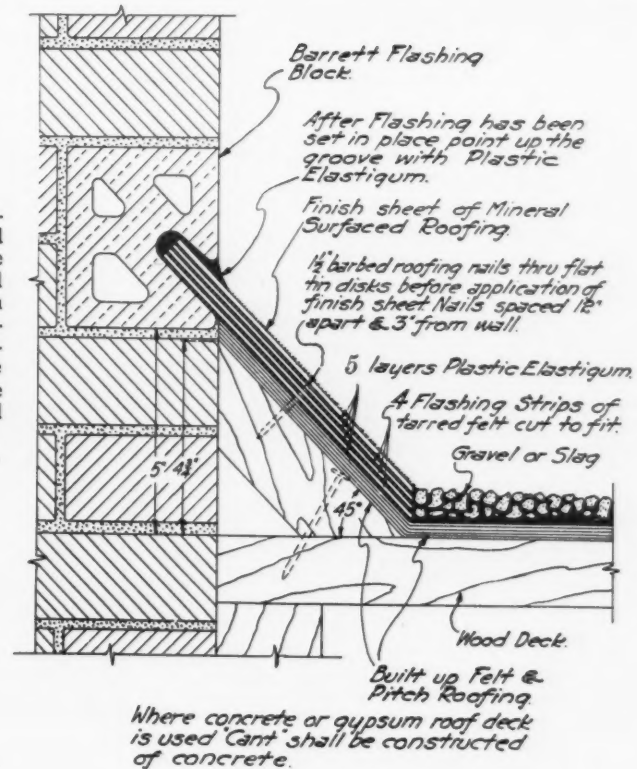 Barrett Flashing
Block.
After Flashing has been
set in place point up the
groove with Plastic
Elastigum.
Finish sheet of Mineral
Surfaced Roofing.
1½" barbed roofing nails thru flat
tin disks before application of
finish sheet Nails spaced 12"
apart & 3" from wall.
5 layers Plastic Elastigum.
4 Flashing Strips of
tarred felt cut to fit.
Gravel or Slag
5" 4¾"
45°
Wood Deck.
Built up Felt &
Pitch Roofing.
Where concrete or gypsum roof deck
is used "Cant" shall be constructed
of concrete.